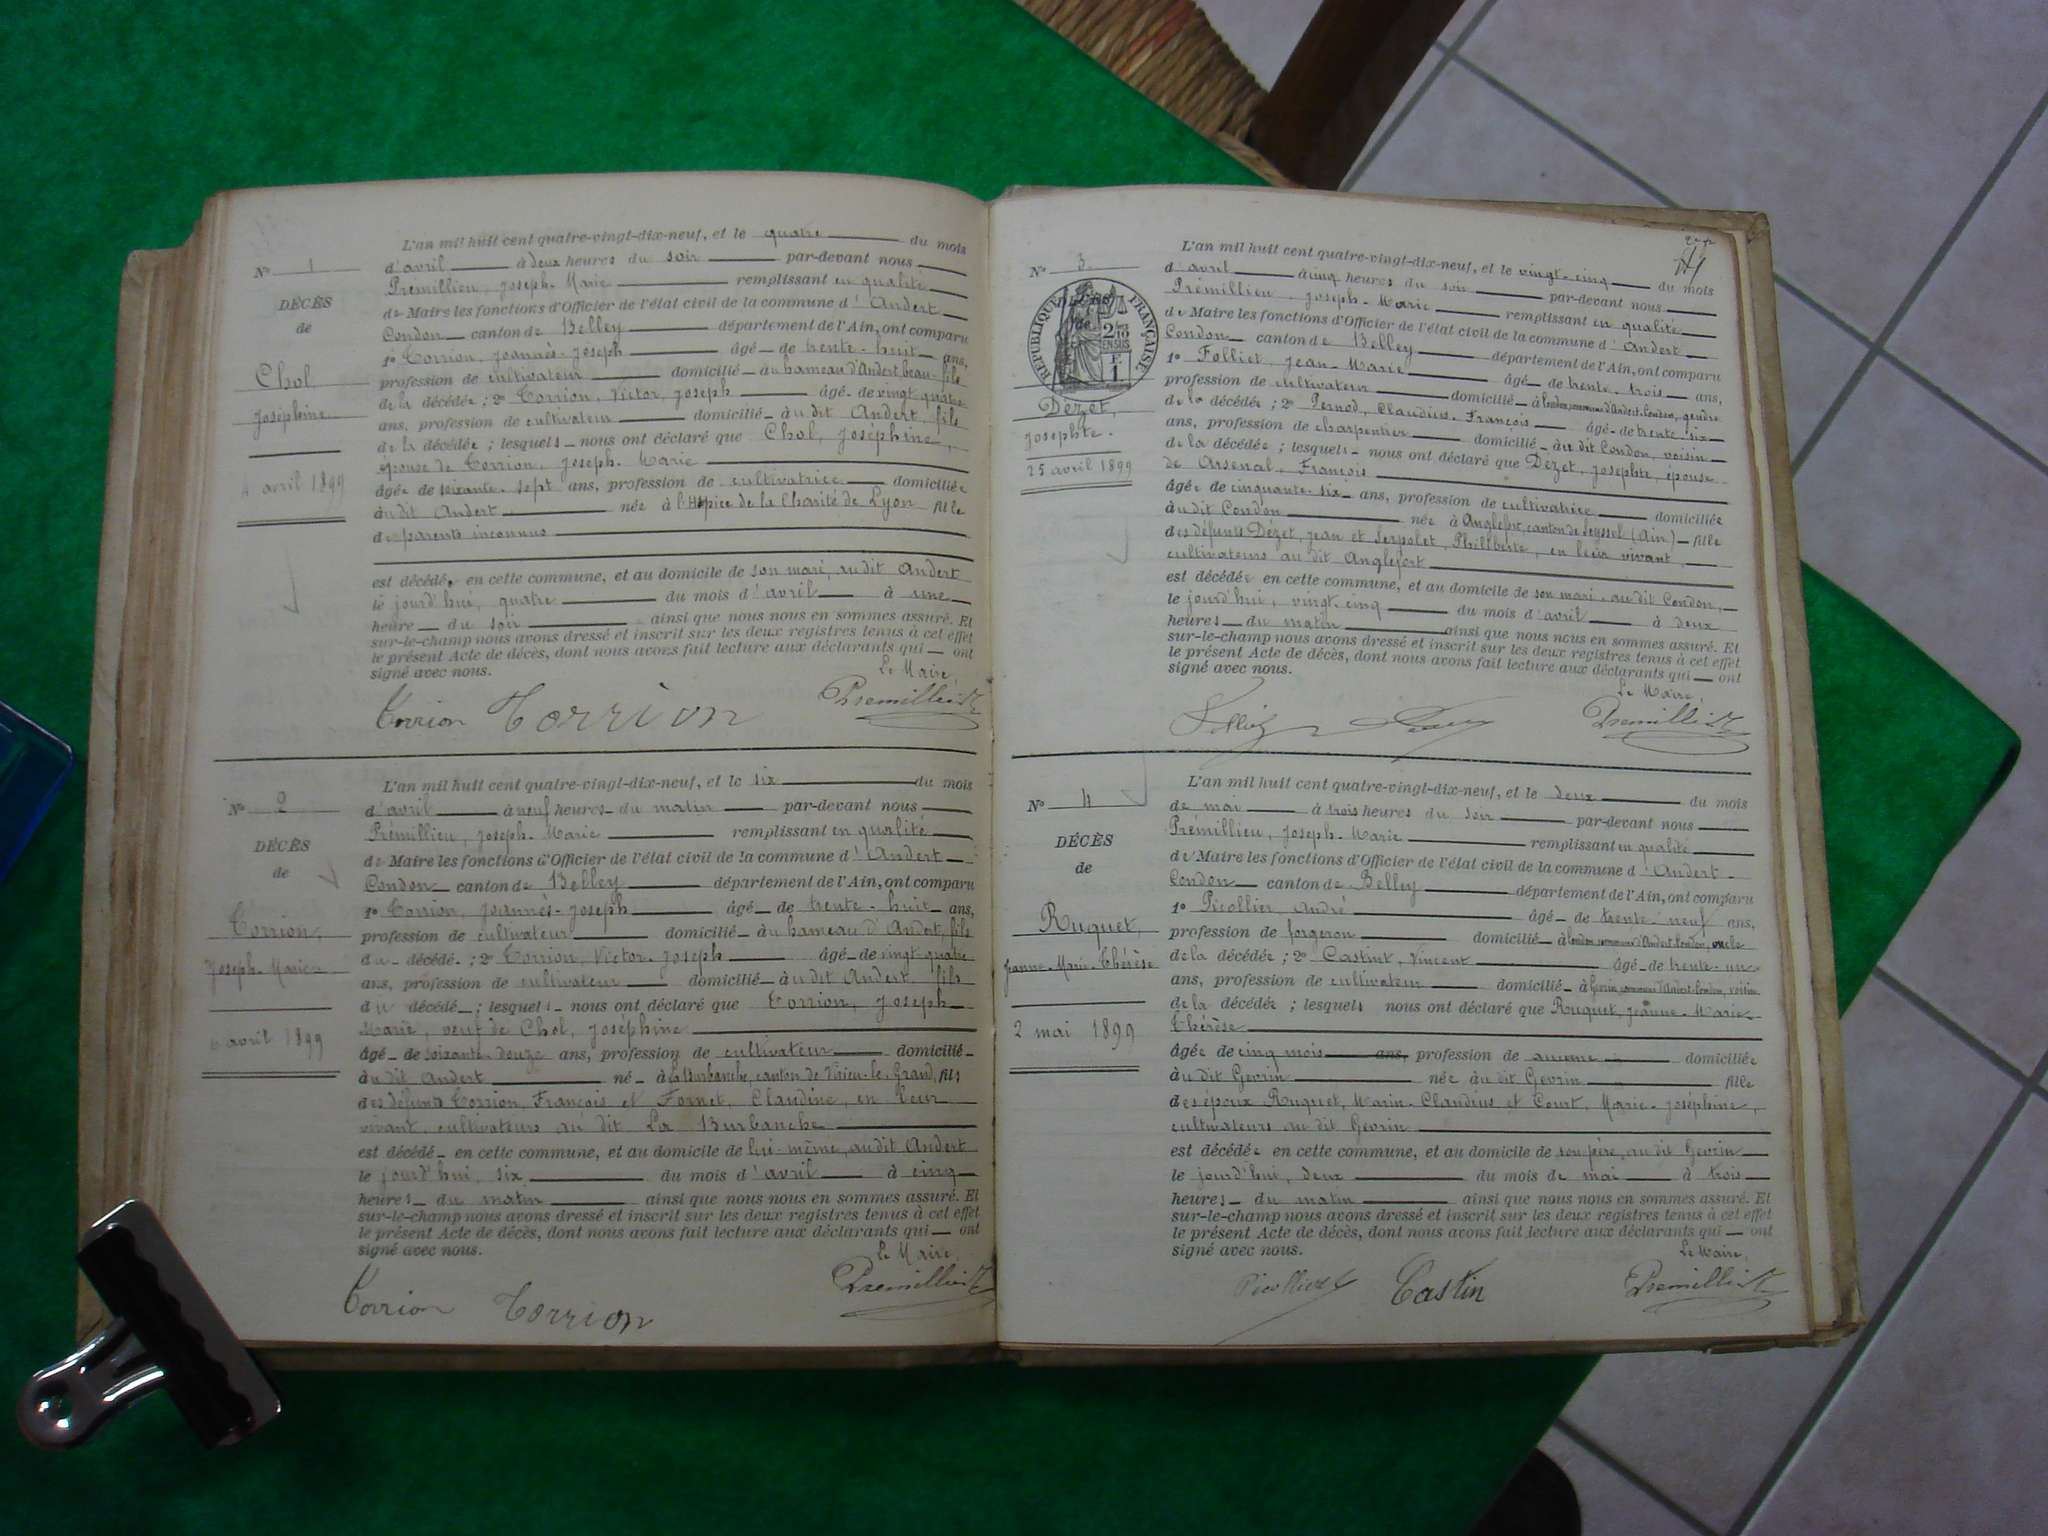 N° 1
DÉCÈS
de
Chol
Joséphine
4 avril 1899
L'an mil huit cent quatre-vingt-dix-neuf, et le quatre du mois
d'avril à deux heures du soir par-devant nous
Prémillieu, Joseph-Marie remplissant en qualité
de Maire les fonctions d'Officier de l'état civil de la commune d'Andert
Condon canton de Belley département de l'Ain, ont comparu
1° Corrion, Joannès-Joseph âgé de trente-huit ans,
profession de cultivateur domicilié au hameau d'Andert, beau-fils
de la décédée ; 2° Corrion, Victor, Joseph âgé de vingt-quatre
ans, profession de cultivateur domicilié au dit Andert, fils
de la décédée ; lesquels nous ont déclaré que Chol, Joséphine,
épouse de Corrion, Joseph-Marie
âgée de soixante-sept ans, profession de cultivatrice domiciliée
au dit Andert née à l'Hospice de la Charité de Lyon fille
de parents inconnus
est décédée en cette commune, et au domicile de son mari, au dit Andert
le jourd'hui, quatre du mois d'avril à une
heure du soir ainsi que nous nous en sommes assuré. Et
sur-le-champ nous avons dressé et inscrit sur les deux registres tenus à cet effet
le présent Acte de décès, dont nous avons fait lecture aux déclarants qui ont
signé avec nous.
Le Maire,
Corrion Corrion Premillieu
N° 2
DÉCÈS
de
Corrion,
Joseph-Marie
6 avril 1899
L'an mil huit cent quatre-vingt-dix-neuf, et le six du mois
d'avril à neuf heures du matin par-devant nous
Prémillieu, Joseph-Marie remplissant en qualité
de Maire les fonctions d'Officier de l'état civil de la commune d'Andert
Condon canton de Belley département de l'Ain, ont comparu
1° Corrion, Joannès-Joseph âgé de trente-huit ans,
profession de cultivateur domicilié au hameau d'Andert, fils
du décédé ; 2° Corrion, Victor-Joseph âgé de vingt-quatre
ans, profession de cultivateur domicilié au dit Andert, fils
du décédé ; lesquels nous ont déclaré que Corrion, Joseph
Marie, veuf de Chol, Joséphine
âgé de soixante-douze ans, profession de cultivateur domicilié
au dit Andert né à La Burbanche, canton de Virieu-le-Grand, fils
des défunts Corrion, François et Fornet, Claudine, en leur
vivant, cultivateurs au dit La Burbanche
est décédé en cette commune, et au domicile de lui-même, au dit Andert
le jourd'hui, six du mois d'avril à cinq
heures du matin ainsi que nous nous en sommes assuré. Et
sur-le-champ nous avons dressé et inscrit sur les deux registres tenus à cet effet
le présent Acte de décès, dont nous avons fait lecture aux déclarants qui ont
signé avec nous.
Le Maire,
Corrion Corrion Premillieu
N° 3
RÉPUBLIQUE FRANÇAISE
DÉCÈS
de
Dézet,
Josephte.
25 avril 1899
L'an mil huit cent quatre-vingt-dix-neuf, et le vingt-cinq du mois
d'avril à cinq heures du soir par-devant nous
Prémillieu, Joseph-Marie remplissant en qualité
de Maire les fonctions d'Officier de l'état civil de la commune d'Andert
Condon canton de Belley département de l'Ain, ont comparu
1° Folliet, Jean-Marie âgé de trente-trois ans,
profession de cultivateur domicilié à Condon, commune d'Andert-Condon, gendre
de la décédée ; 2° Pernod, Claudius-François âgé de trente-six
ans, profession de charpentier domicilié au dit Condon, voisin
de la décédée ; lesquels nous ont déclaré que Dézet, Josephte, épouse
de Arsenal, François
âgée de cinquante-six ans, profession de cultivatrice domiciliée
au dit Condon née à Anglefort, canton de Seyssel (Ain) fille
des défunts Dézet, Jean et Serpolet, Philiberte, en leur vivant,
cultivateurs au dit Anglefort
est décédée en cette commune, et au domicile de son mari, au dit Condon,
le jourd'hui, vingt-cinq du mois d'avril à deux
heures du matin ainsi que nous nous en sommes assuré. Et
sur-le-champ nous avons dressé et inscrit sur les deux registres tenus à cet effet
le présent Acte de décès, dont nous avons fait lecture aux déclarants qui ont
signé avec nous.
Le Maire,
Premillieu
N° 4
DÉCÈS
de
Ruquet,
Jeanne-Marie-Thérèse
2 mai 1899
L'an mil huit cent quatre-vingt-dix-neuf, et le deux du mois
de mai à trois heures du soir par-devant nous
Prémillieu, Joseph-Marie remplissant en qualité
de Maire les fonctions d'Officier de l'état civil de la commune d'Andert
Condon canton de Belley département de l'Ain, ont comparu
1° Picollier, André âgé de trente-neuf ans,
profession de forgeron domicilié à Condon, commune d'Andert-Condon, oncle
de la décédée ; 2° Castint, Vincent âgé de trente-un
ans, profession de cultivateur domicilié à Gevrin, commune d'Andert-Condon, voisin
de la décédée ; lesquels nous ont déclaré que Ruquet, Jeanne-Marie-
Thérèse
âgée de cinq mois ans, profession de aucune domiciliée
au dit Gevrin née au dit Gevrin fille
des époux Ruquet, Marin-Claudius et Court, Marie-Joséphine,
cultivateurs au dit Gevrin
est décédée en cette commune, et au domicile de son père, au dit Gevrin
le jourd'hui, deux du mois de mai à trois
heures du matin ainsi que nous nous en sommes assuré. Et
sur-le-champ nous avons dressé et inscrit sur les deux registres tenus à cet effet
le présent Acte de décès, dont nous avons fait lecture aux déclarants qui ont
signé avec nous.
Le Maire,
Picollier Castin Premillieu